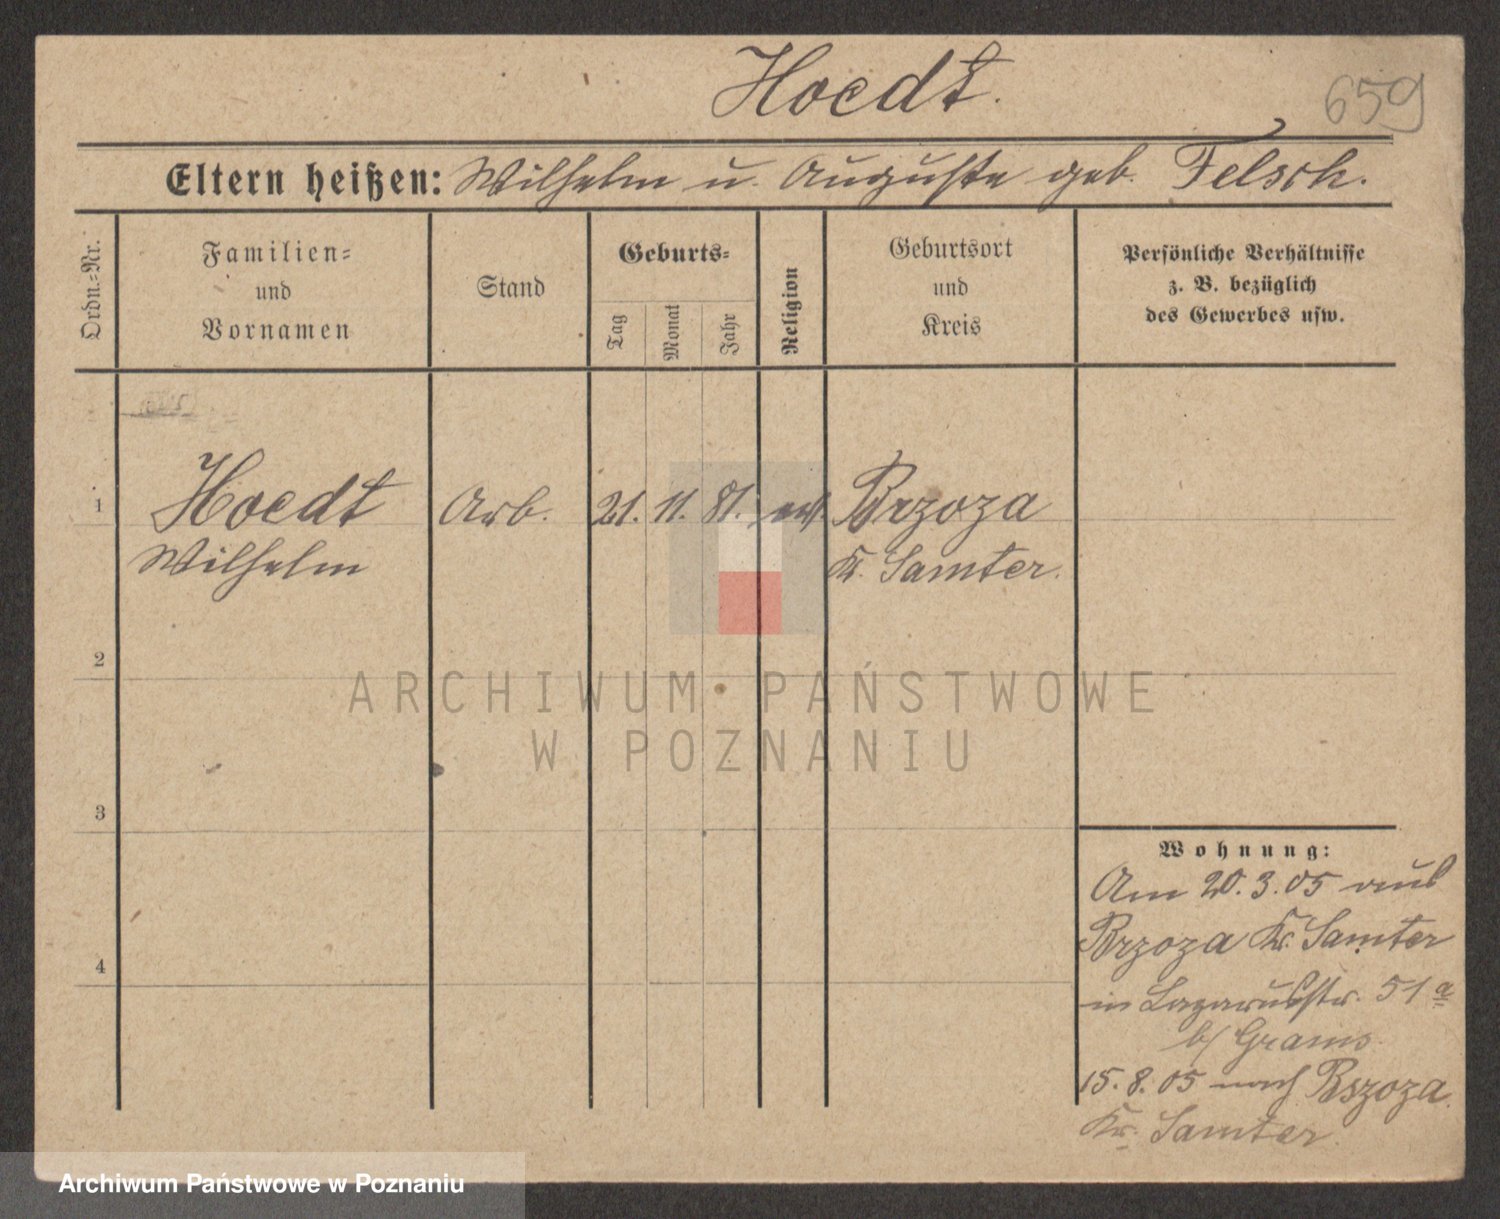 Hoedt.
659
Eltern heißen: Wilhelm u. Auguste geb. Felsch.
Ordn.-Nr.
Familien-
und
Vornamen
Stand
Geburts-
Tag
Monat
Jahr
Religion
Geburtsort
und
Kreis
Persönliche Verhältnisse
z. B. bezüglich
des Gewerbes usw.
1 Hoedt Arb. 21. 11. 81. ev. Brzoza
Wilhelm Kr. Samter.
2
ARCHIWUM PAŃSTWOWE
W POZNANIU
3
Wohnung:
Am 20.3.05 aus
Brzoza Kr. Samter
4
in Lazarusstr. 51 a
b/ Grams
15.8.05 nach Bszoza
Kr. Samter.
Archiwum Państwowe w Poznaniu